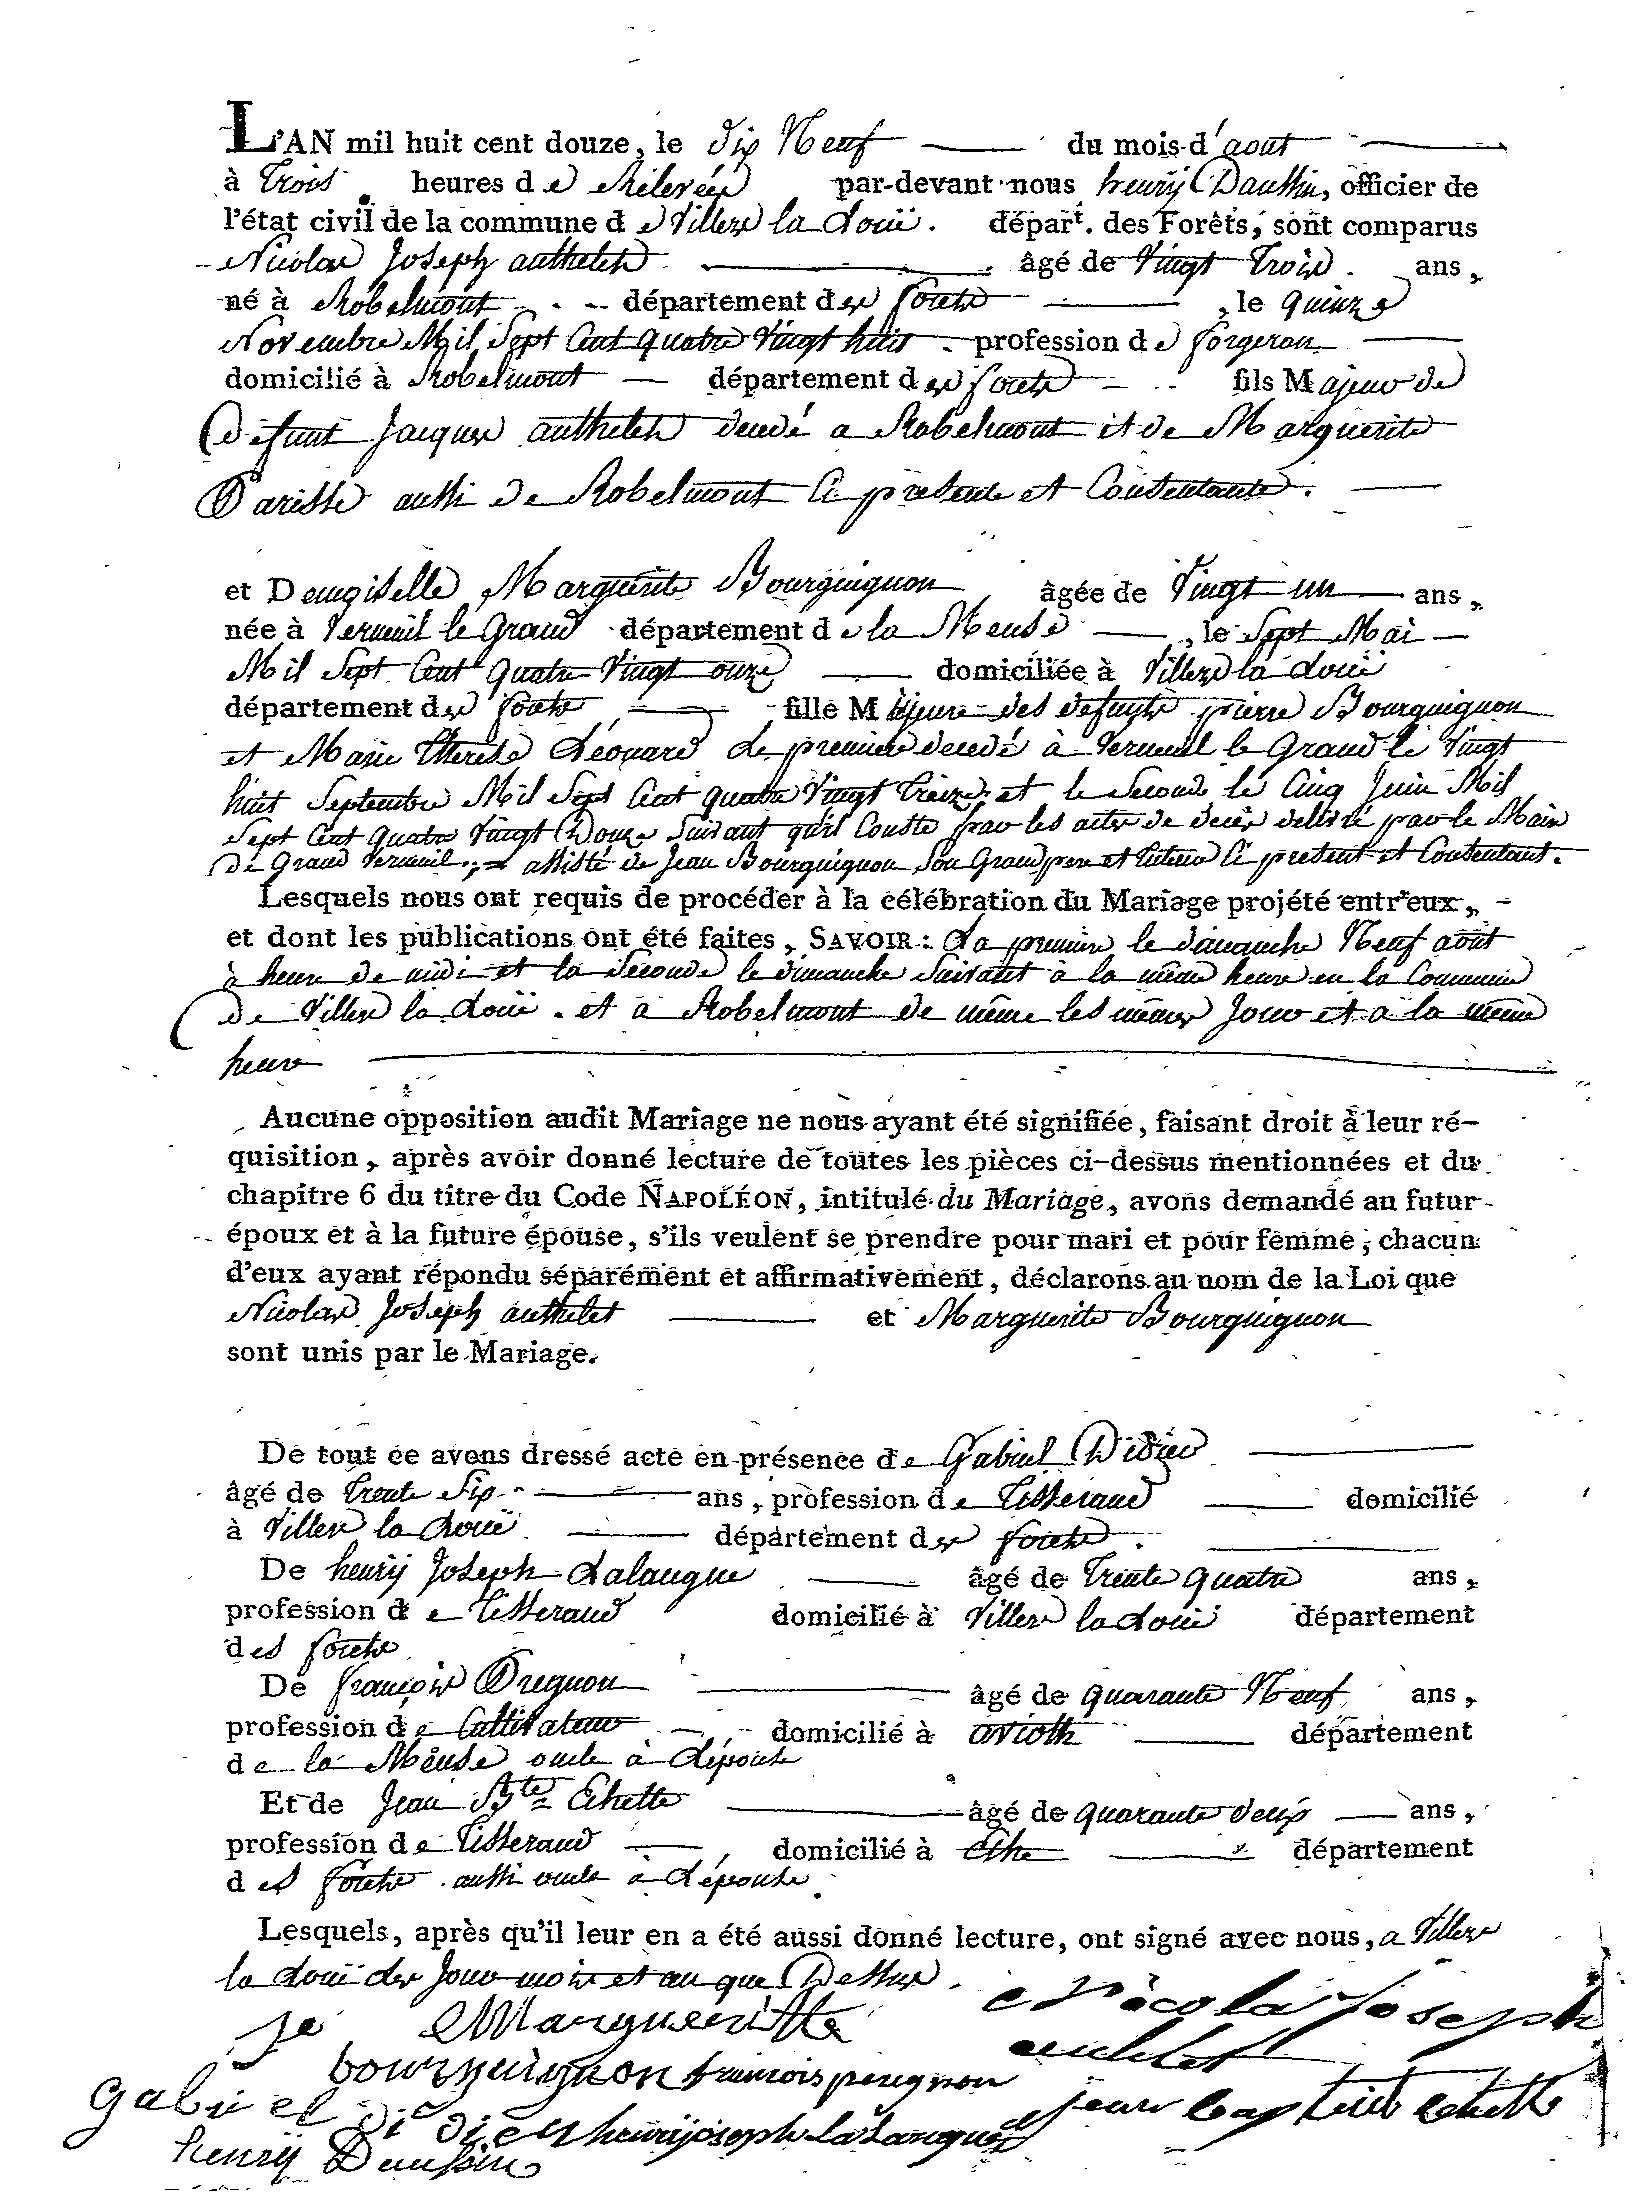 L'AN mil huit cent douze, le dix Neuf du mois d'aout
à Trois heures de Relevée par-devant nous henrÿ Dauffin, officier de
l'état civil de la commune de Villers la Loüe. départ. des Forêts, sont comparus
Nicolas Joseph authelet âgé de Vingt Trois ans,
né à Robelmont département des forets, le quinze
Novembre Mil Sept Cent quatre Vingt huit profession de forgeron
domicilié à Robelmont département des forets fils Majeur de
Defunt Jacques authelet decedé a Robelmont et de Marguerite
aussi de Robelmont Ci presente et Consentante.
et Demoiselle Marguerite Bourguignon âgée de Vingt un ans,
née à Verneuil le Grand département de la Meuse, le Sept Mai
Mil Sept Cent Quatre Vingt onze domiciliée à Villers la Loüe
département des forets fille Majeure des defunts pierre Bourguignon
et Marie Therese Léonard Le premier decedé à Verneuil le Grand le Vingt
huit Septembre Mil Sept Cent quatre Vingt Treize et le Second le Cinq Juin Mil
Sept Cent Quatre Vingt Douze Suivant qu'il Conste par les actes de decès delivré par le Maire
de Grand Verneuil, assisté de Jean Bourguignon Son Grand pere et tuteur Ci present et Consentant.
Lesquels nous ont requis de procéder à la célébration du Mariage projété entr'eux,
et dont les publications ont été faites, SAVOIR : La premiere le dimanche Neuf aout
à heure de midi et la Seconde le dimanche Suivant à la même heure en la Commune
de Villers la Loüe. et a Robelmont de même les mêmes Jour et a la même
heure
Aucune opposition audit Mariage ne nous ayant été signifiée, faisant droit à leur ré-
quisition, après avoir donné lecture de toutes les pièces ci-dessus mentionnées et du
chapitre 6 du titre du Code NAPOLÉON, intitulé du Mariage, avons demandé au futur
époux et à la future épouse, s'ils veulent se prendre pour mari et pour femme, chacun
d'eux ayant répondu séparément et affirmativement, déclarons au nom de la Loi que
Nicolas Joseph authelet et Marguerite Bourguignon
sont unis par le Mariage.
De tout ce avons dressé acte en présence de Gabriel Didier
âgé de Trente Six ans, profession de Tisserand domicilié
à Villers la Loüe département des forets.
De henrÿ Joseph Lalangue âgé de Trente Quatre ans,
profession de Tisserand domicilié à Villers la Loüe département
des forets
De françois Pregnon âgé de quarante Neuf ans,
profession de Cultivateur domicilié à avioth département
de la Meuse oncle à L'épouse
Et de Jean Bte Echette âgé de quarante deux ans,
profession de Tisserand, domicilié à Ethe département
des forets aussi oncle a L'épouse.
Lesquels, après qu'il leur en a été aussi donné lecture, ont signé avec nous, a Villers
la Loüe des Jour mois et an que Dessus.
Nicola Joseph
Margueritte
autelet
bourguignon francois peregnon
Gabriel didier henrijoseph Lalangue jean baptiste echette
henrÿ Dauffin